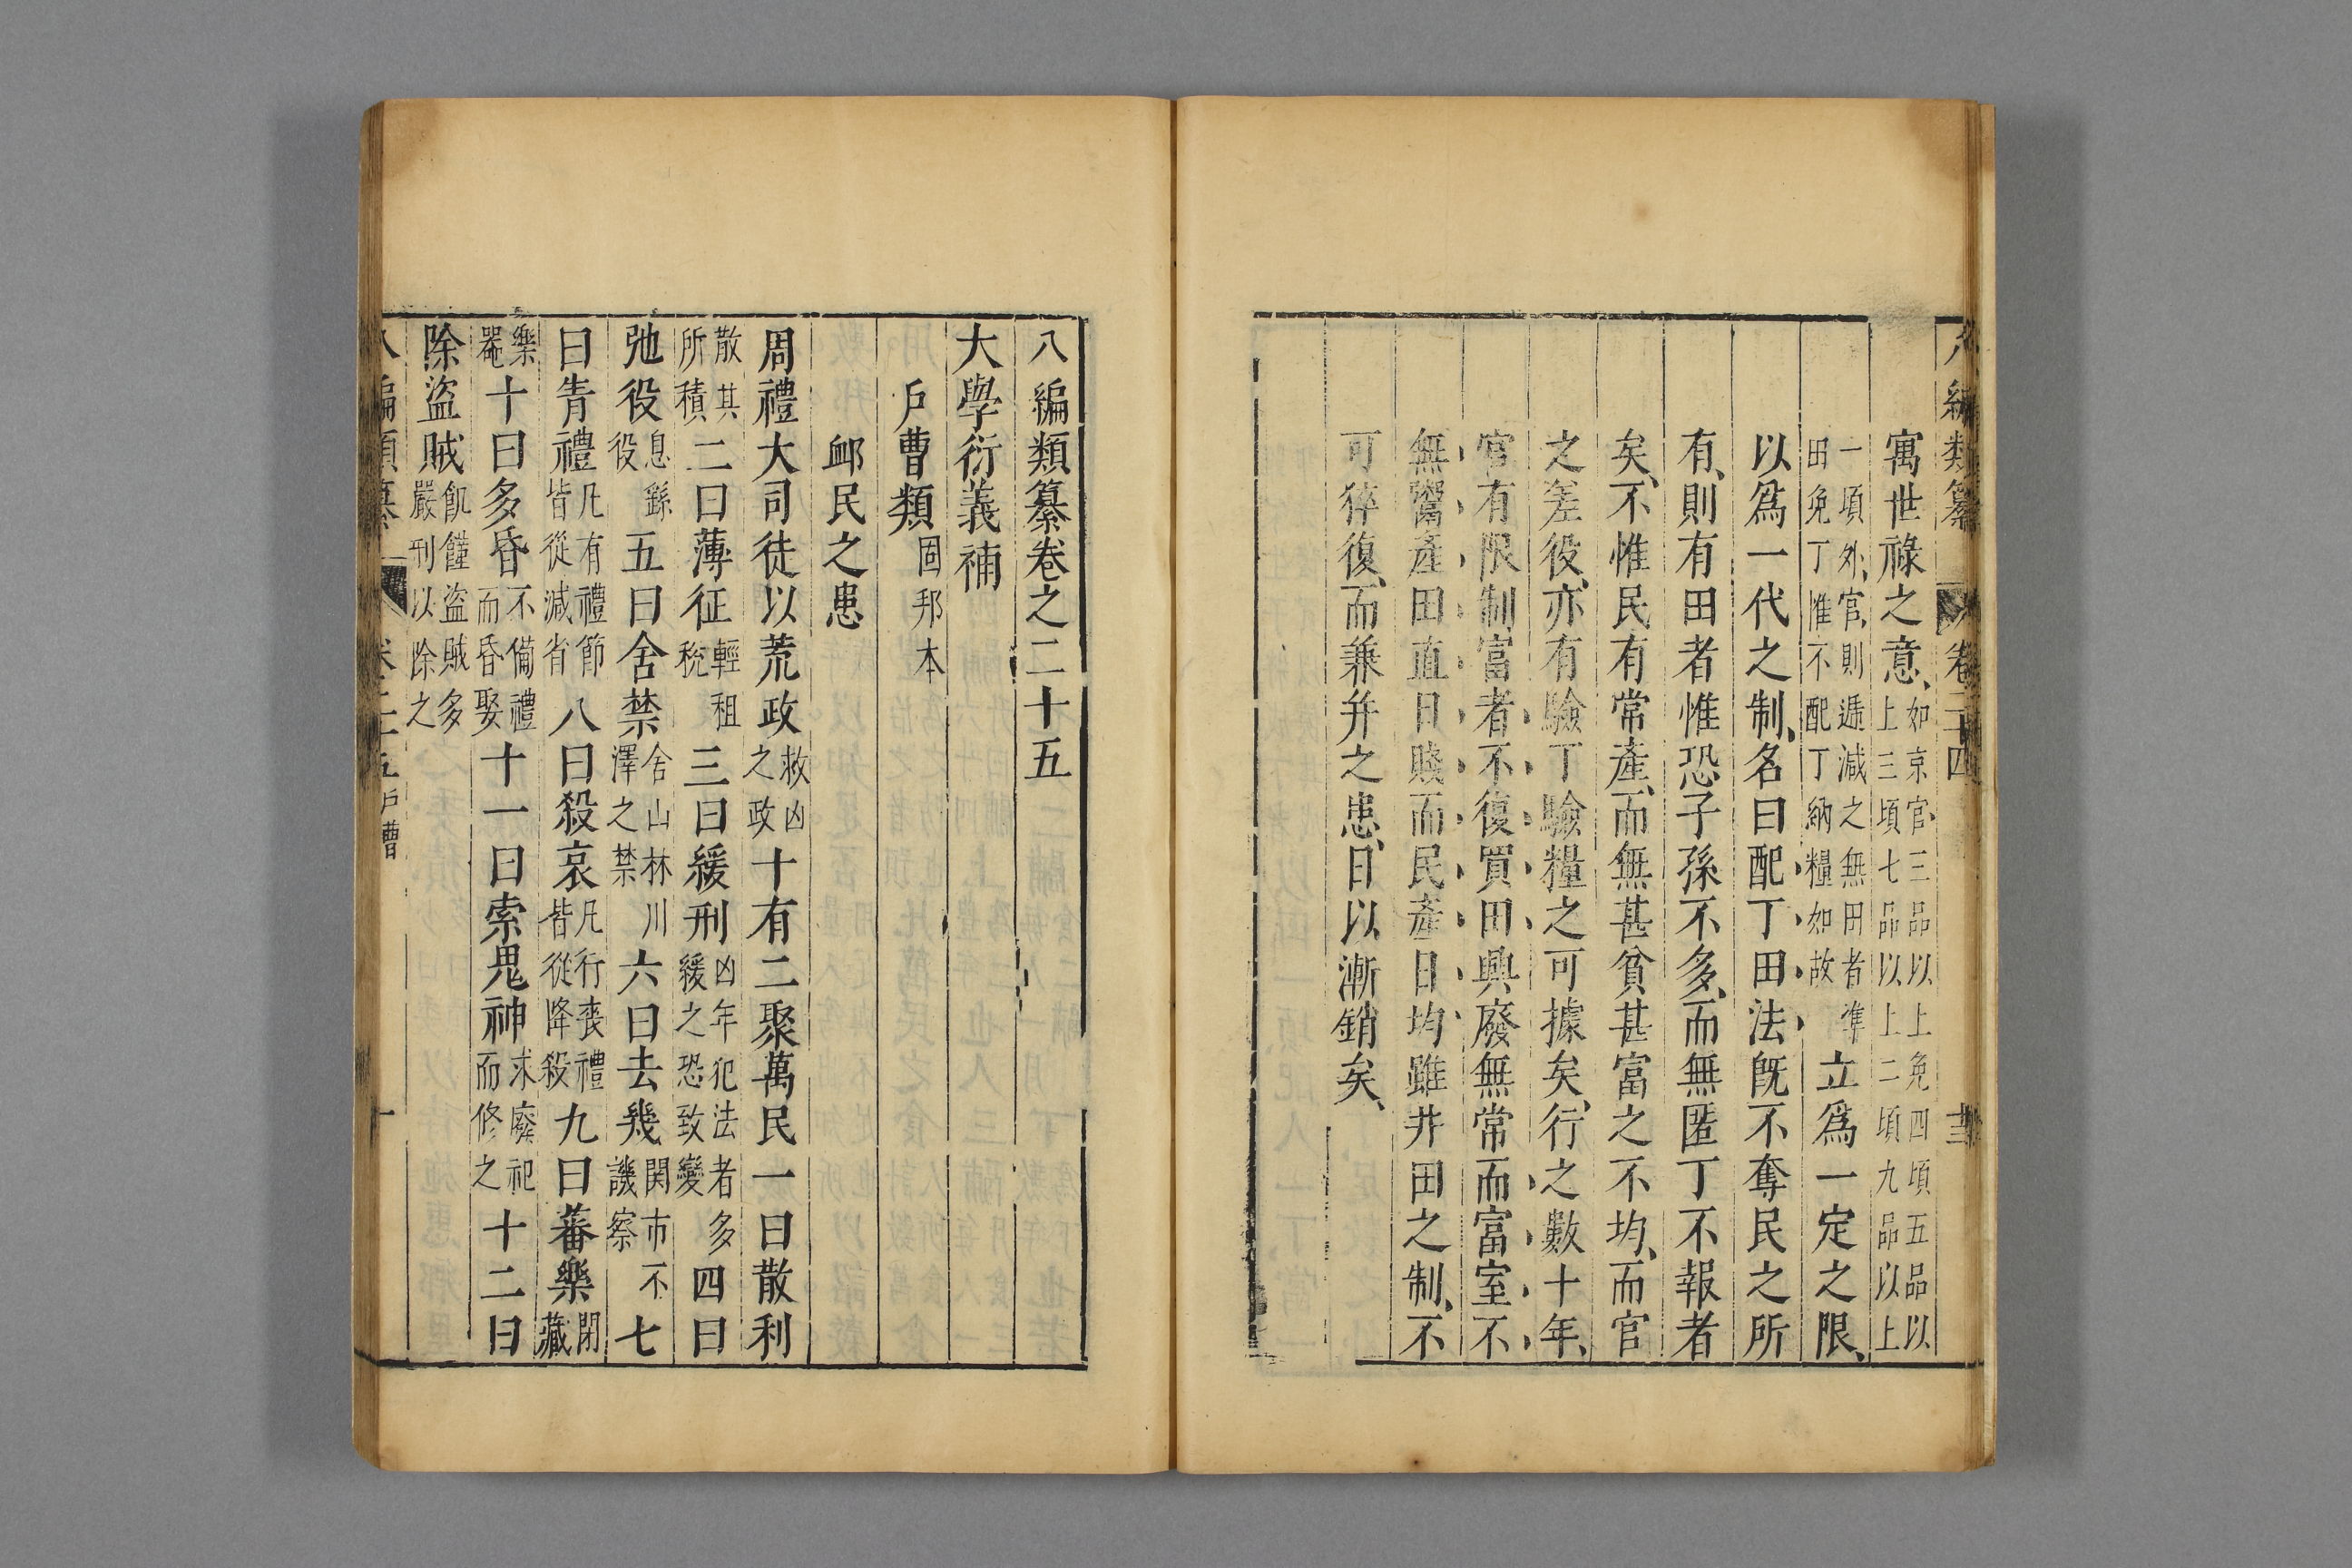 八編類纂 卷二十四
寓世祿之意、如京官、三品以上免四頃五品以上三頃七品以上二頃九品以上
一頃外、官、則遞減之無田者準田免丁惟不配丁納糧如故立爲一定之限、
以爲一代之制、名曰配丁田法旣不奪民之所
有、則有田者惟恐子孫不多、而無匿丁不報者
矣、不惟民有常產、而無甚貧甚富之不均、而官
之差役、亦有驗丁驗糧之可據矣、行之數十年、
官有限制富者、不復買田興廢無常而富室不
無鬻產田直日賤而民產日均雖井田之制、不
可猝復、而兼并之患、日以漸銷矣、
八編類纂卷之二十五
大學衍義補
戶曹類固邦本
卹民之患
周禮大司徒以荒政救凶之政十有二聚萬民一曰散利
散其所積二曰薄征輕租稅三曰緩刑凶年犯法者多緩之恐致變四曰
弛役息繇役五曰舍禁舍山林川澤之禁六曰去幾関市不譏察七
曰眚禮凡有禮節皆從減省八曰殺哀凡行喪禮皆從降殺九曰蕃樂閉藏
樂器十曰多昏不備禮而昏娶十一曰索鬼神求廢祀而修之十二曰
除盜賊飢饉盜賊多嚴刑以除之
八編類纂 卷二十五 戶曹 一